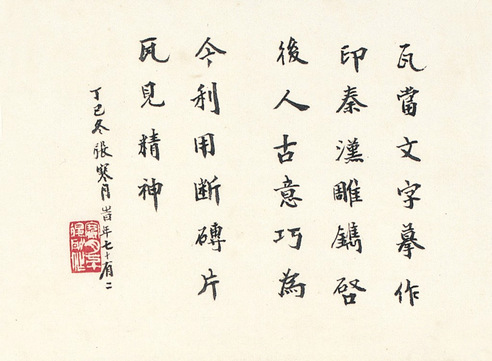 瓦當文字摹作
印秦漢雕鐫啓
後人古意巧為
今利用断磚片
瓦見精神
丁巳冬張寒月旹年七十有二